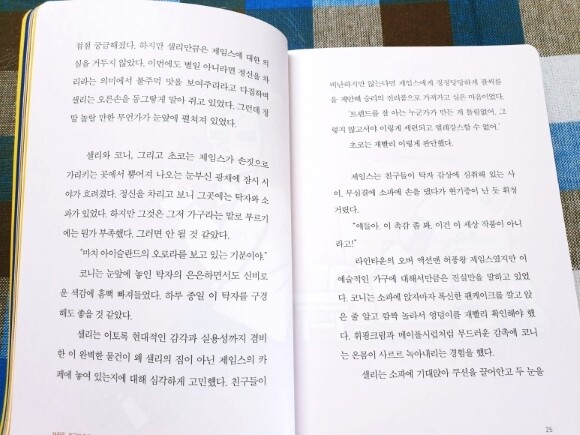 점점 궁금해졌다. 하지만 샐리만큼은 제임스에 대한 의
심을 거두지 않았다. 이번에도 별일 아니라면 정신을 차
리라는 의미에서 불주먹 맛을 보여주리라고 다짐하며
샐리는 오른손을 동그랗게 말아 쥐고 있었다. 그런데 정
말 놀랄 만한 무언가가 눈앞에 펼쳐져 있었다.
샐리와 코니, 그리고 초코는 제임스가 손짓으로
가리키는 곳에서 뿜어져 나오는 눈부신 광채에 잠시 시
야가 흐려졌다. 정신을 차리고 보니 그곳에는 탁자와 소
파가 있었다. 하지만 그것은 그저 가구라는 말로 부르기
에는 뭔가 부족했다. 그러면 안 될 것 같았다.
“마치 아이슬란드의 오로라를 보고 있는 기분이야.”
코니는 눈앞에 놓인 탁자의 은은하면서도 신비로
운 색감에 흠뻑 빠져들었다. 하루 종일 이 탁자를 구경
해도 좋을 것 같았다.
샐리는 이토록 현대적인 감각과 실용성까지 겸비
한 이 완벽한 물건이 왜 샐리의 집이 아닌 제임스의 카
페에 놓여 있는지에 대해 심각하게 고민했다. 친구들이
비난하지만 않는다면 제임스에게 정정당당하게 팔씨름
을 제안해 승리의 전리품으로 가져가고 싶은 마음이었다.
‘트렌드를 잘 아는 누군가가 만든 게 틀림없어. 그
렇지 않고서야 이렇게 세련되고 엘레강스할 수 없어.’
초코는 재빨리 이렇게 판단했다.
제임스는 친구들이 탁자 감상에 심취해 있는 사
이, 무심결에 소파에 손을 댔다가 현기증이 난 듯 휘청
거렸다.
“얘들아, 이 촉감 좀 봐. 이건 이 세상 작품이 아니
라고!”
라인타운의 오버 액션맨 허풍왕 제임스였지만 이
예술적인 가구에 대해서만큼은 진실만을 말하고 있었
다. 코니는 소파에 앉자마자 폭신한 팬케이크를 깔고 앉
은 줄 알고 깜짝 놀라서 엉덩이를 재빨리 확인해야 했
다. 휘핑크림과 메이플시럽처럼 부드러운 감촉에 코니
는 온몸이 사르르 녹아내리는 경험을 했다.
샐리는 소파에 기대앉아 쿠션을 끌어안고 두 눈을
25